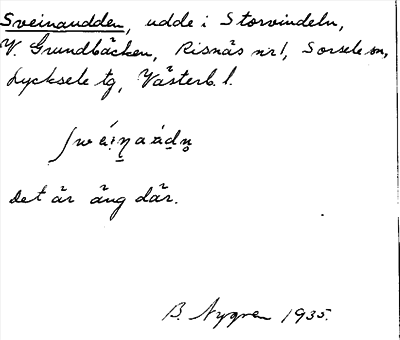 Sveinaudden, udde i Storvindeln,
V. Grundbäcken, Risnäs nr 1, Sorsele sn,
Lycksele tg, Västerb. l.
Det är äng där.
B. Nygren 1935.